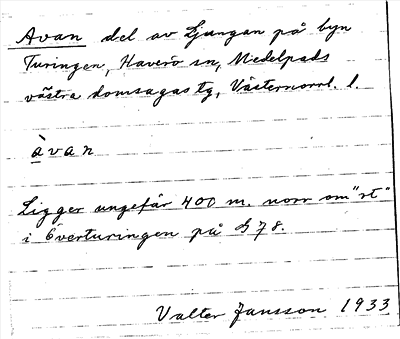 Avan del av Ljungan på byn
Turingen, Haverö sn, Medelpads
västra domsagas tg, Västernorrl. l.
àvan
Ligger ungefär 400 m. norr om "rt"
i Överturingen på G 78.
Valter Jansson 1933